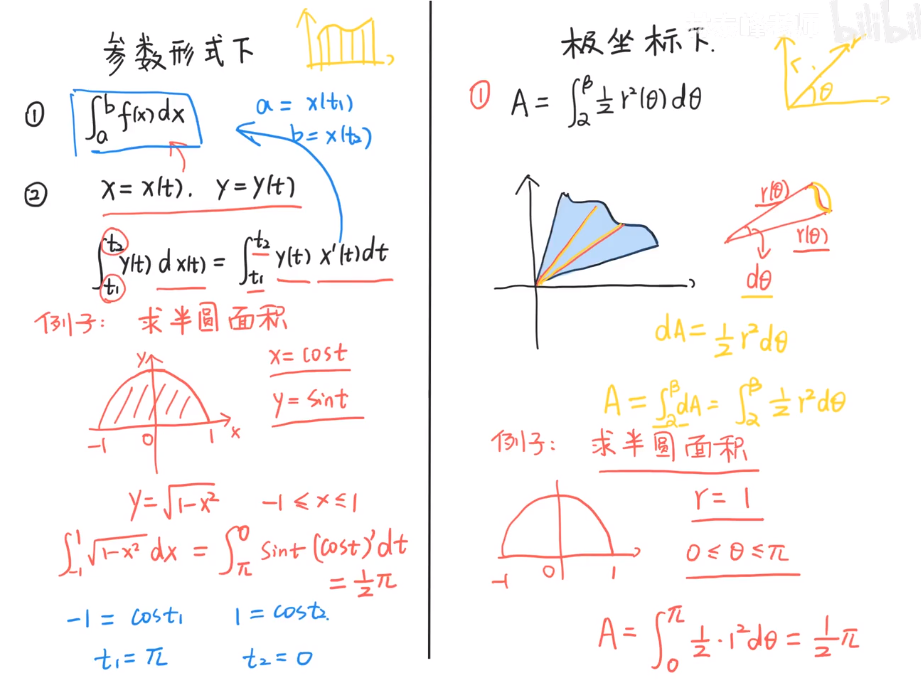 参数形式下
① ∫_a^b f(x)dx
a = x(t₁)
b = x(t₂)
② x = x(t). y = y(t)
∫_{t₁}^{t₂} y(t) dx(t) = ∫_{t₁}^{t₂} y(t) x'(t)dt
例子: 求半圆面积
x = cost
y = sint
y
-1 0 1 x
y = √(1-x²) -1 ≤ x ≤ 1
∫_{-1}^1 √(1-x²) dx = ∫_π^0 sint (cost)'dt
= ½π
-1 = cost₁ 1 = cost₂.
t₁ = π t₂ = 0
bilibili
极坐标下.
r
r.
θ
① A = ∫_2^β ½ r²(θ)dθ
r(θ)
r(θ)
dθ
dA = ½ r²dθ
A = ∫_2^β dA = ∫_2^β ½ r²dθ
例子: 求半圆面积
r = 1
0 ≤ θ ≤ π
-1 0 1
A = ∫_0^π ½·1²dθ = ½π